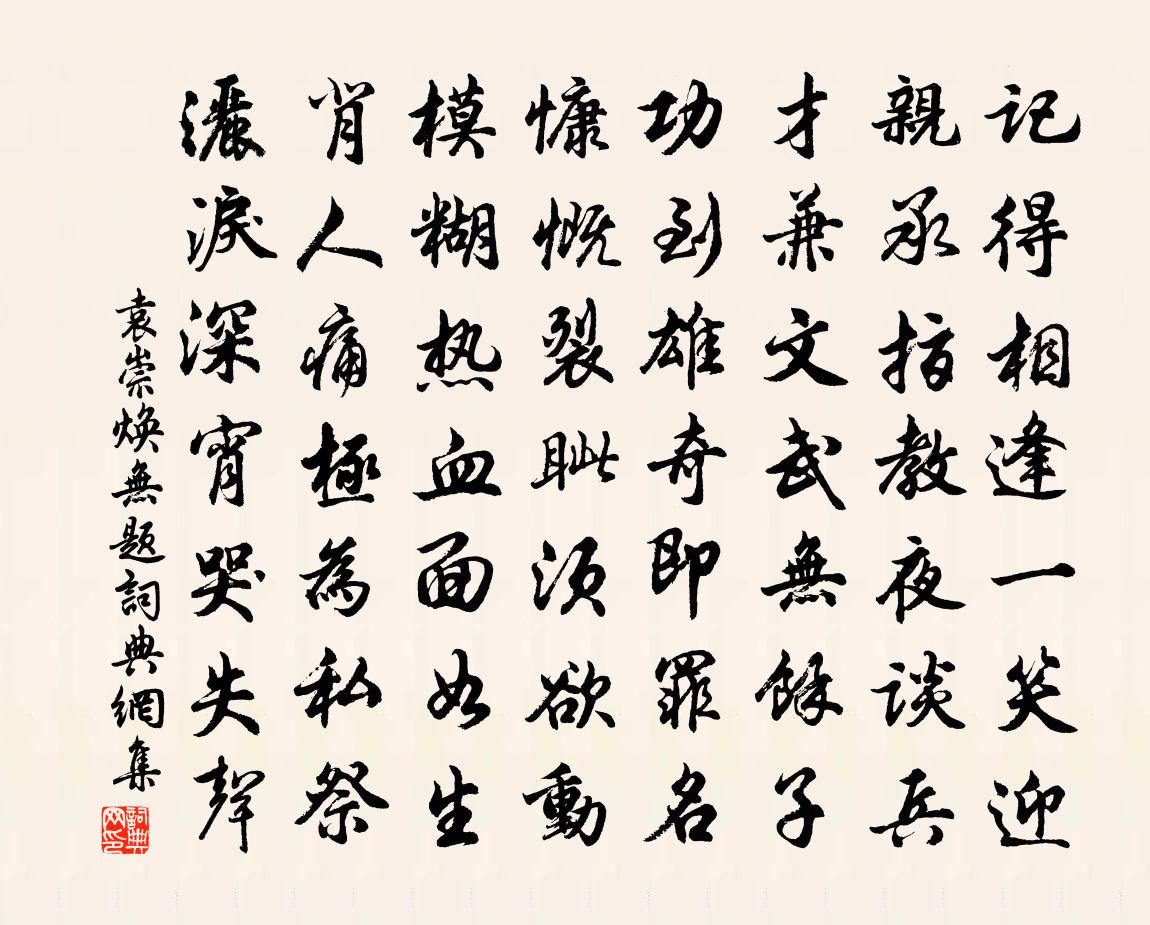 记得相逢一笑迎
親承指教夜谈兵
才兼文武無餘子
功到雄奇即罪名
慷慨裂眦须欲動
模糊热血面如生
背人痛極為私祭
灑淚深宵哭失聲
袁崇焕無题詞典網集
詞典网印